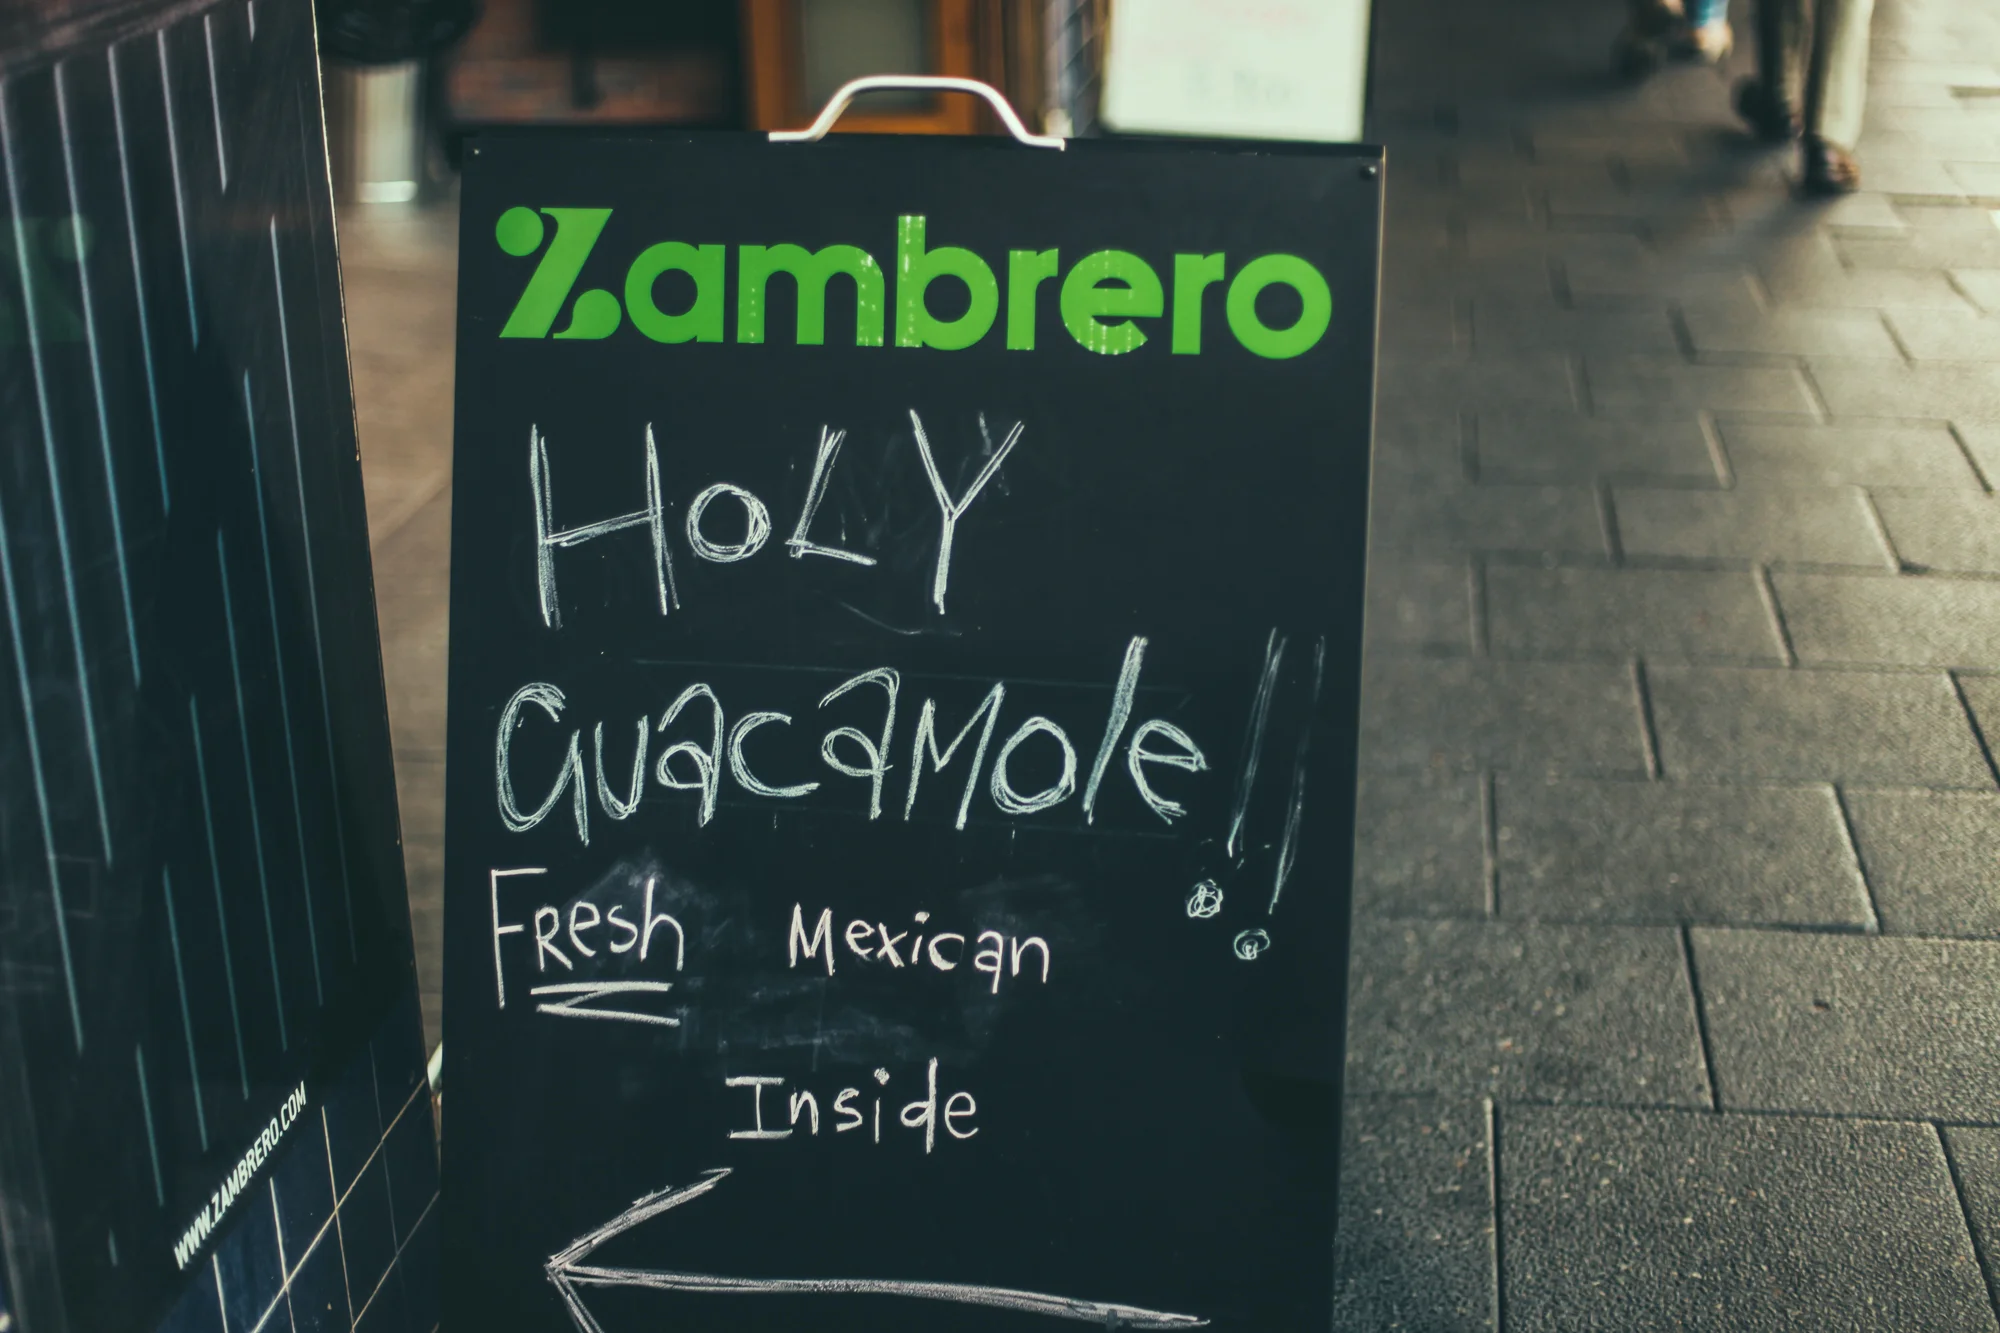 Zambrero
HoLY
GuacaMole!!
Fresh Mexican
Inside
WWW.ZAMBRERO.COM